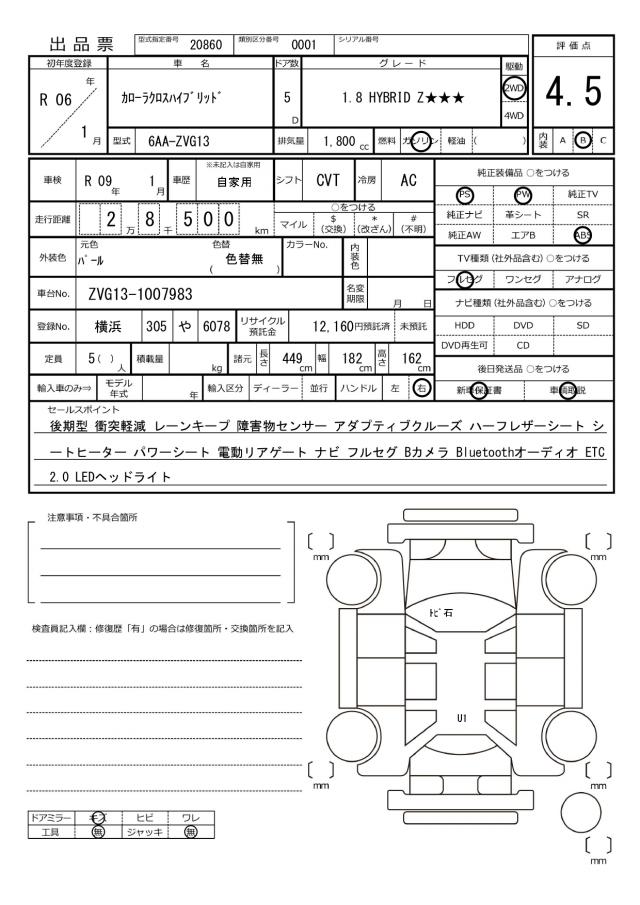 出品票 型式指定番号 20860 類別区分番号 0001 シリアル番号
評価点
初年度登録 車名 ドア数 グレード 駆動
R 06 年 カローラクロスハイブリッド 5 D 1.8 HYBRID Z★★★ 2WD 4.5
4WD
1 月 型式 6AA-ZVG13 排気量 1,800 cc 燃料 ガソリン 軽油 ( ) 内装 A B C
車検 R 09 年 1 月 車歴 ※未記入は自家用 自家用 シフト CVT 冷房 AC
純正装備品 ○をつける
PS PW 純正TV
純正ナビ 革シート SR
純正AW エアB ABS
走行距離 2 万 8 千 5 0 0 km ○をつける
マイル $ (交換) * (改ざん) # (不明)
外装色 元色 パール 色替 ( 色替無 ) カラーNo. 内装色
TV種類 (社外品含む) ○をつける
フルセグ ワンセグ アナログ
車台No. ZVG13-1007983 名変期限 月 日
ナビ種類 (社外品含む) ○をつける
登録No. 横浜 305 や 6078 リサイクル預託金 12,160円預託済 未預託
HDD DVD SD
DVD再生可 CD
定員 5( ) 人 積載量 kg 諸元 長さ 449 cm 幅 182 cm 高さ 162 cm
後日発送品 ○をつける
輸入車のみ⇒ モデル年式 年 輸入区分 ディーラー 並行 ハンドル 左 右
新車保証書 車輌取説
セールスポイント
後期型 衝突軽減 レーンキープ 障害物センサー アダプティブクルーズ ハーフレザーシート シ
ートヒーター パワーシート 電動リアゲート ナビ フルセグ Bカメラ Bluetoothオーディオ ETC
2.0 LEDヘッドライト
注意事項・不具合箇所
mm mm
トビ石
検査員記入欄：修復歴「有」の場合は修復箇所・交換箇所を記入
U1
mm mm
ドアミラー キズ ヒビ ワレ
工具 無 ジャッキ 無
mm